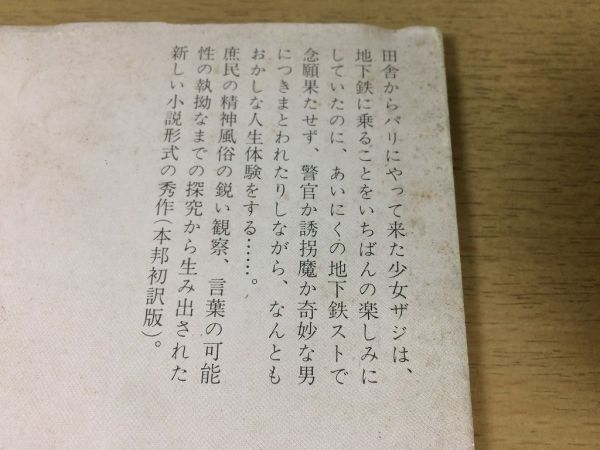 田舎からパリにやって来た少女ザジは、
地下鉄に乗ることをいちばんの楽しみに
していたのに、あいにくの地下鉄ストで
念願果たせず、警官か誘拐魔か奇妙な男
につきまとわれたりしながら、なんとも
おかしな人生体験をする……。
庶民の精神風俗の鋭い観察、言葉の可能
性の執拗なまでの探究から生み出された
新しい小説形式の秀作(本邦初訳版)。